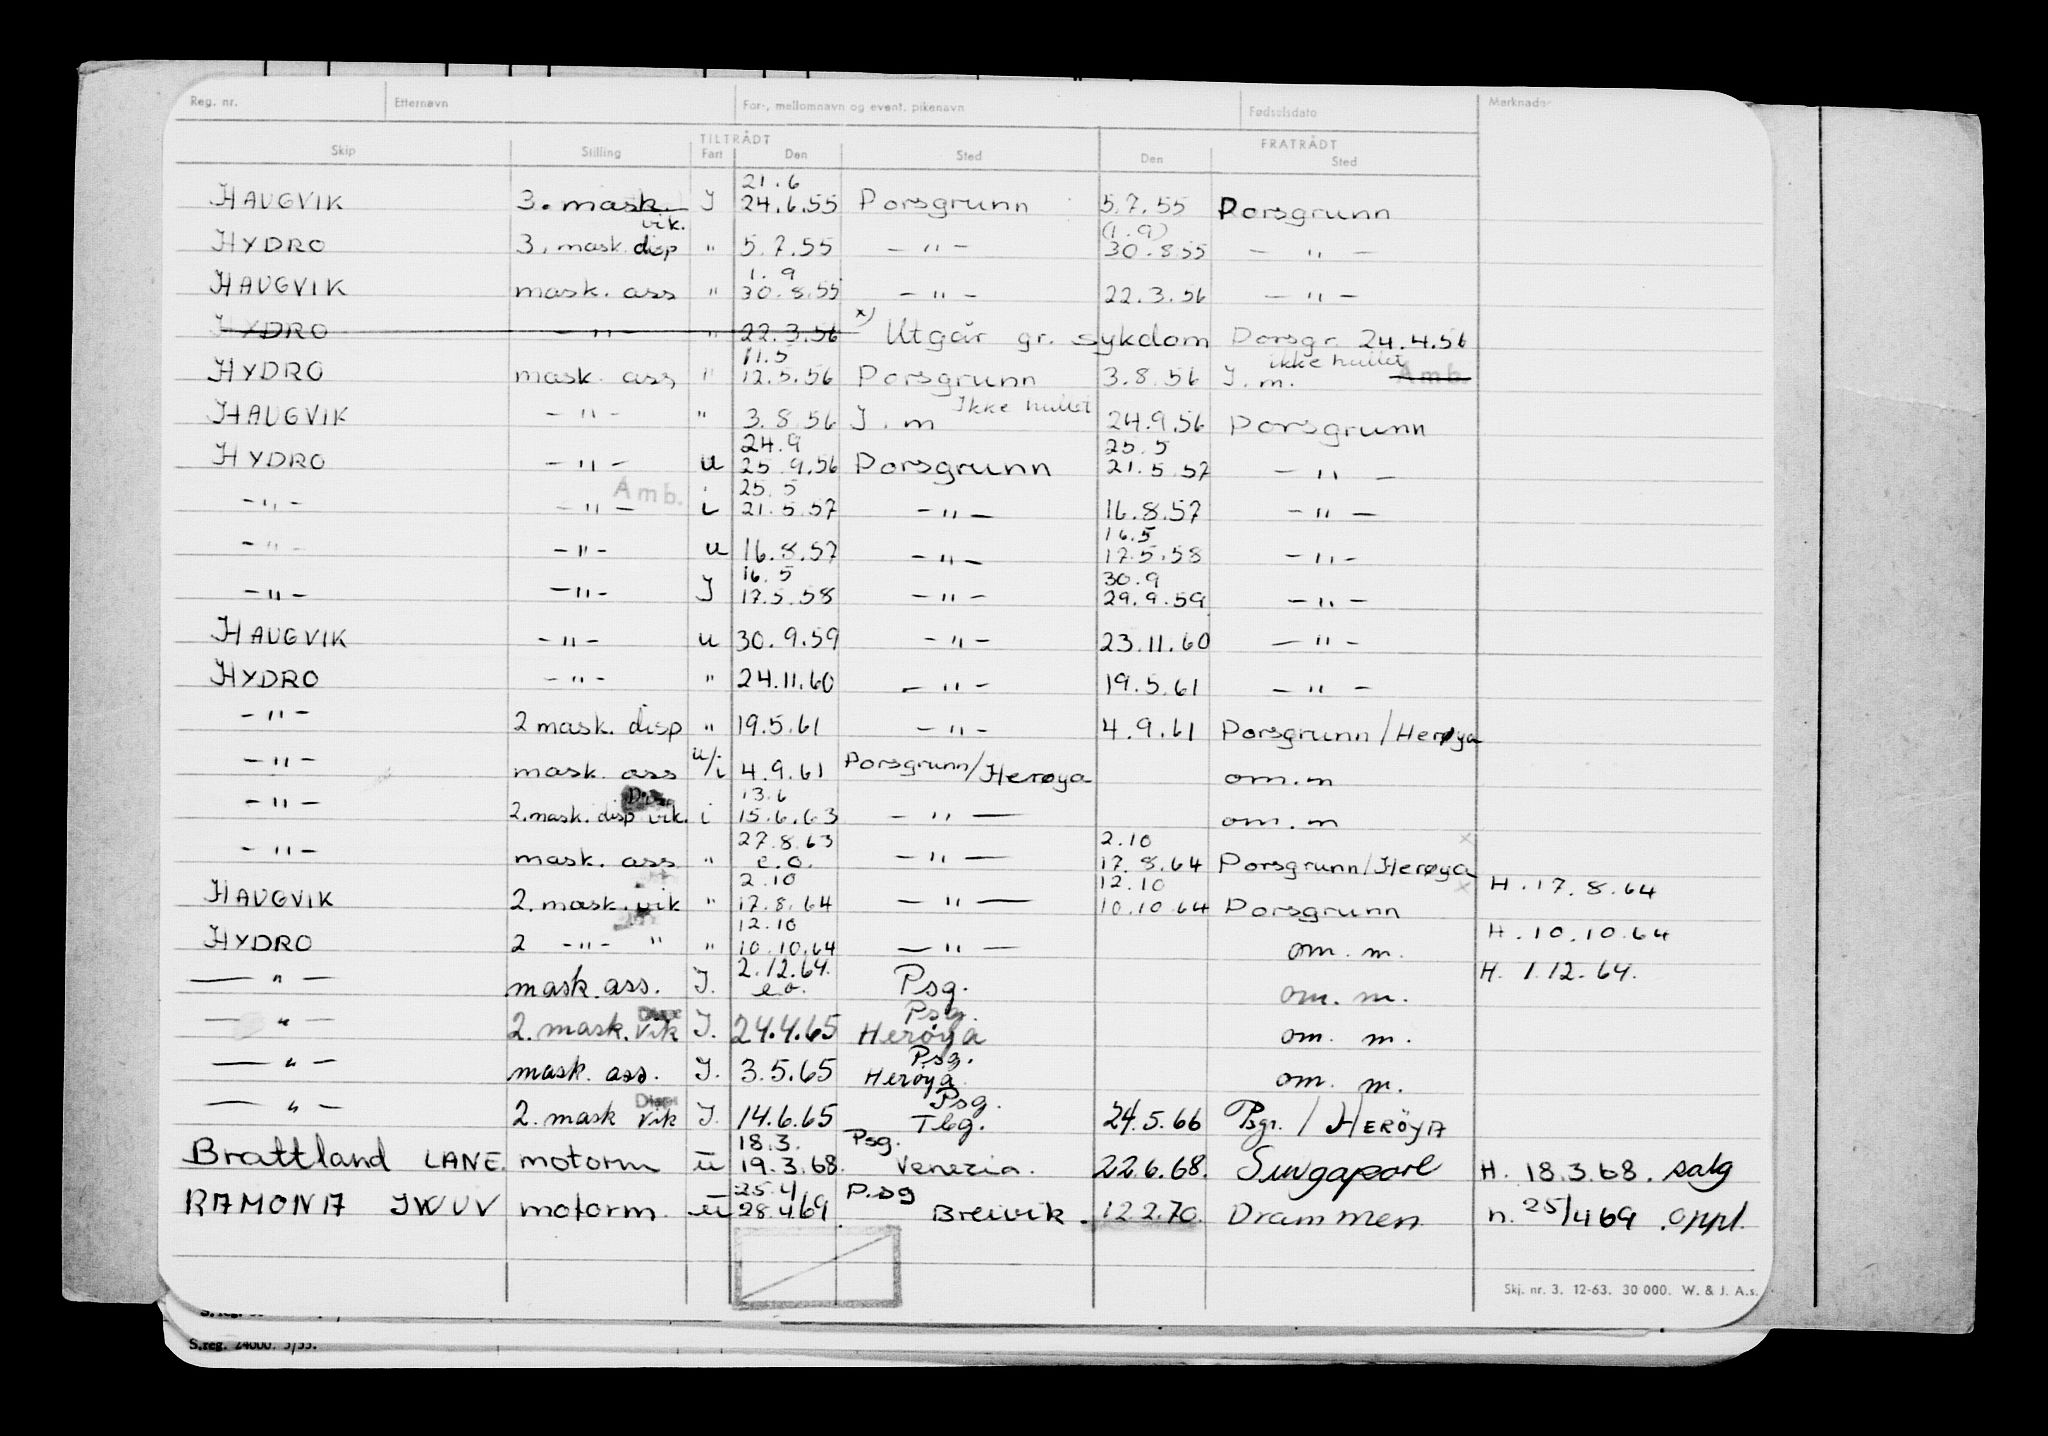 Reg. nr. Etternavn For-, mellomnavn og event. pikenavn Fødselsdato Merknader
TILTRÅDT FRATRÅDT
Skip Stilling Fart Den Sted Den Sted
21.6
HAUGVIK 3. mask. J 24.6.55 Porsgrunn 5.7.55 Porsgrunn
vik. (1.9)
HYDRO 3. mask. disp " 5.7.55 - " - 30.8.55 - " -
1.9
HAUGVIK mask. ass " 30.8.55 - " - 22.3.56 - " -
HYDRO - " - " 22.3.56 x) Utgår gr. sykdom Porsgr. 24.4.56
11.5 ikke hullet
HYDRO mask. ass " 12.5.56 Porsgrunn 3.8.56 J. m. Amb.
Ikke hullet
HAUGVIK - " - " 3.8.56 J. m 24.9.56 Porsgrunn
24.9 25.5
HYDRO - " - u 25.9.56 Porsgrunn 21.5.57 - " -
Amb. 25.5
- " - - " - i 21.5.57 - " - 16.8.57 - " -
16.5
- " - - " - u 16.8.57 - " - 17.5.58 - " -
16.5 30.9
- " - - " - J 17.5.58 - " - 29.9.59 - " -
HAUGVIK - " - u 30.9.59 - " - 23.11.60 - " -
HYDRO - " - " 24.11.60 - " - 19.5.61 - " -
- " - 2 mask. disp " 19.5.61 - " - 4.9.61 Porsgrunn/Herøya
- " - mask. ass u/i 4.9.61 Porsgrunn/Herøya om. m
13.6
- " - 2. mask. disp vik. i 15.6.63 - " - om. m
27.8.63 2.10 x
- " - mask. ass " e.o. - " - 17.8.64 Porsgrunn/Herøya
2.10 12.10 x H. 17.8.64
HAUGVIK 2. mask. vik " 17.8.64 - " - 10.10.64 Porsgrunn
12.10 H. 10.10.64
HYDRO 2 - " - " " 10.10.64 - " - om. m.
2.12.64. H. 1.12.64.
- " - mask. ass. J. e.o. Psg. om. m.
Disp Psg.
- " - 2. mask. vik J. 24.4.65 Herøya om. m.
Psg.
- " - mask. ass. J. 3.5.65 Herøya om. m.
Disp Psg.
- " - 2. mask vik J. 14.6.65 Tbg. 24.5.66 Psgr. / HERÖYA
18.3. Psg.
Brattland LANE motorm u 19.3.68. Venezia. 22.6.68. Singapore H. 18.3.68. salg
25.4 P.sg
RAMONA JWUV motorm. u 28.4.69. Breivik. 12.2.70. Drammen n. 25/4 69 .oppl.
Skj. nr. 3. 12-63. 30 000. W. & J. A.s.
S.reg. 24000. 5/55.